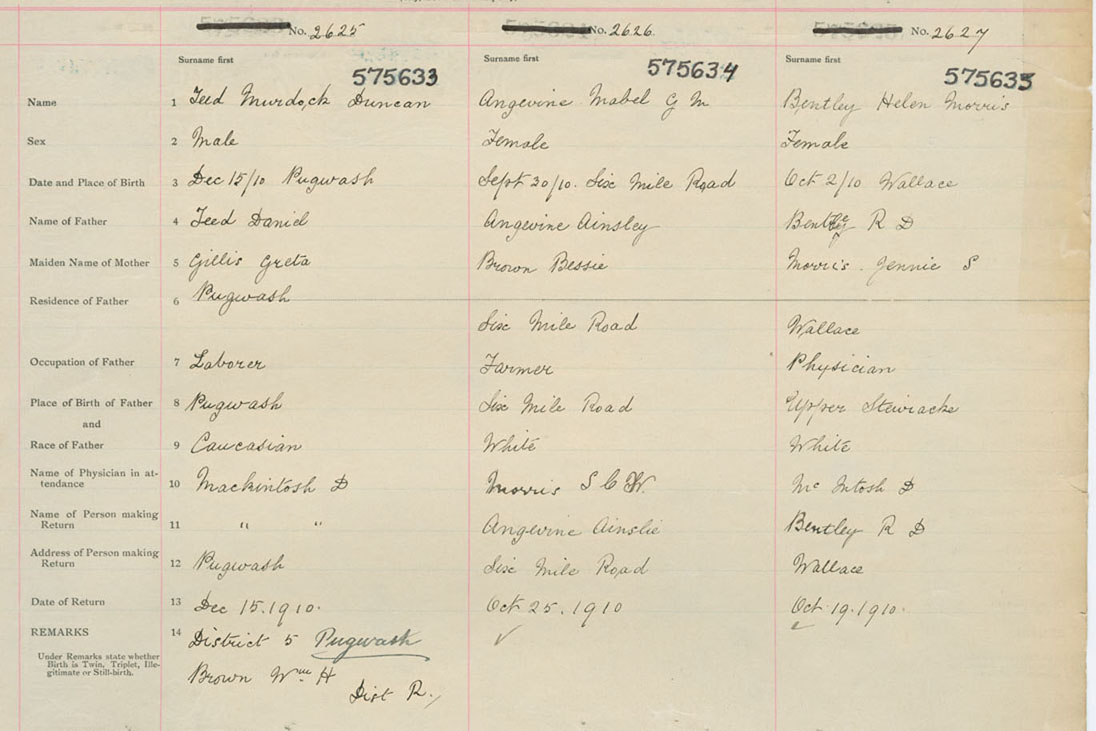 No. 2625 No. 2626 No. 2627
Surname first Surname first Surname first
575633 575634 575635
Name 1 Teed Murdock Duncan Angevine Mabel G M Bentley Helen Morris
Sex 2 Male Female Female
Date and Place of Birth 3 Dec 15/10 Pugwash Sept 30/10. Six Mile Road Oct 2/10 Wallace
Name of Father 4 Teed Daniel Angevine Ainsley Bentley R D
Maiden Name of Mother 5 Gillis Greta Brown Bessie Morris. Jennie S
Residence of Father 6 Pugwash
Six Mile Road Wallace
Occupation of Father 7 Laborer Farmer Physician
Place of Birth of Father 8 Pugwash Six Mile Road Upper Stewiacke
and
Race of Father 9 Caucasian White White
Name of Physician in at-
tendance 10 Mackintosh D Morris S C W. Mc Intosh D
Name of Person making
Return 11 " " Angevine Ainslie Bentley R D
Address of Person making
Return 12 Pugwash Six Mile Road Wallace
Date of Return 13 Dec 15.1910. Oct 25.1910 Oct 19.1910.
REMARKS 14 District 5 Pugwash ✓ ✓
Under Remarks state whether
Birth is Twin, Triplet, Ille-
gitimate or Still-birth.
Brown Wm H
Dist R.